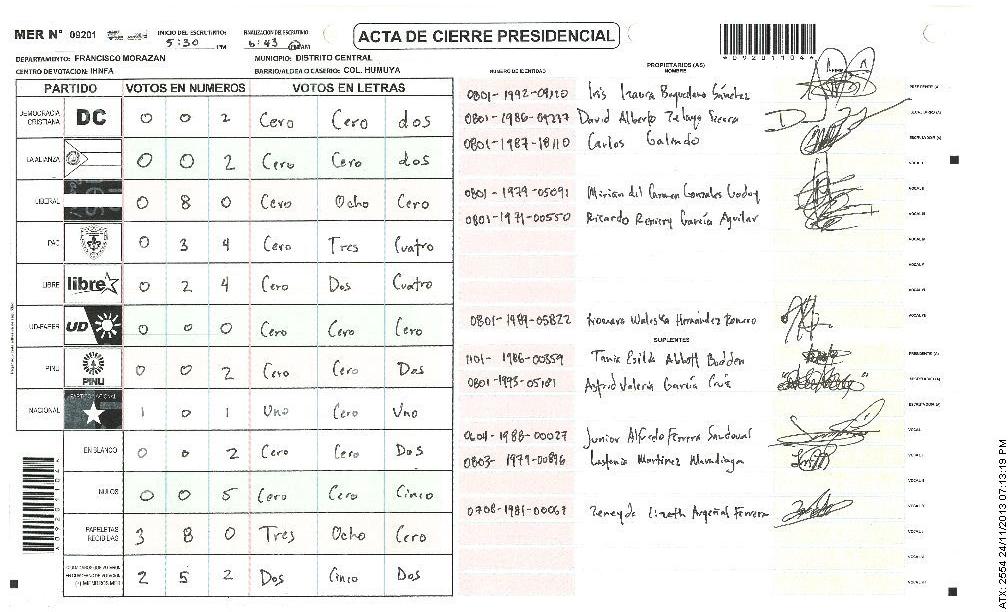 MER N° 09201
INICIO DEL ESCRUTINIO: 5:30 PM
FINALIZACION DEL ESCRUTINIO 6:43
ACTA DE CIERRE PRESIDENCIAL
*09201104*
DEPARTAMENTO: FRANCISCO MORAZAN
MUNICIPIO: DISTRITO CENTRAL
CENTRO DE VOTACION: IHNFA
BARRIO/ALDEA O CASERIO: COL. HUMUYA
PARTIDO VOTOS EN NUMEROS VOTOS EN LETRAS
DEMOCRACIA CRISTIANA DC 0 0 2 Cero Cero dos
LA ALIANZA 0 0 2 Cero Cero dos
LIBERAL 0 8 0 Cero Ocho Cero
PAC 0 3 4 Cero Tres Cuatro
LIBRE libre 0 2 4 Cero Dos Cuatro
UD-FAPER UD 0 0 0 Cero Cero Cero
PINU PINU 0 0 2 Cero Cero Dos
NACIONAL PARTIDO NACIONAL 1 0 1 Uno Cero Uno
EN BLANCO 0 0 2 Cero Cero Dos
NULOS 0 0 5 Cero Cero Cinco
PAPELETAS RECIBIDAS 3 8 0 Tres Ocho Cero
2 5 2 Dos Cinco Dos
NUMERO DE IDENTIDAD
PROPIETARIOS (AS)
NOMBRE
Iris Baquedano Sánchez PRESIDENTE (A)
0801-1986-09237 David Alberto Zelaya SECRETARIO (A)
0801-1987-18110 Carlos Galindo ESCRUTADOR (A)
VOCAL I
0801-1979-05091 Mirian del Carmen Gonzales Godoy VOCAL II
0801-1971-00550 Ricardo García Aguilar VOCAL III
VOCAL IV
VOCAL V
VOCAL VI
0801-1989-05822 Waleska Hernández Romero
SUPLENTES
1101-1986-00859 Tania Esilda Abbott Bodden PRESIDENTE (A)
0801-1993-05181 Astrid Valeria García Cruz SECRETARIO (A)
ESCRUTADOR (A)
0604-1988-00027 Junior Alfredo Ferrera Sandoval VOCAL I
0803-1979-00896 Martinez Maradiaga VOCAL II
VOCAL III
0708-1981-00067 Zeneyda Lizeth Argeñal Ferrera
ATX: 2554 24/11/2013 07:13:19 PM